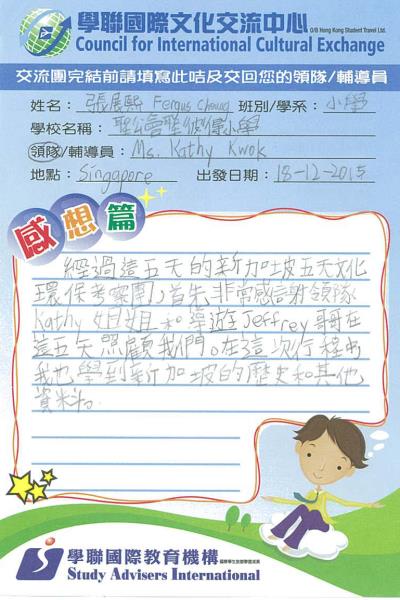 學聯國際文化交流中心 O/B Hong Kong Student Travel Ltd.
Council for International Cultural Exchange
交流團完結前請填寫此咭及交回您的領隊/輔導員
姓名: 張展熙 Fergus Cheung 班別/學系: 小學
學校名稱: 聖公會聖彼得小學
領隊/輔導員: Ms. Kathy Kwok
地點: Singapore 出發日期: 18-12-2015
感想篇
經過這五天的新加坡五天文化
環保考察團,首先非常感謝領隊
Kathy 姐姐和導遊Jeffrey 哥哥在
這五天照顧我們。在這次行程中
我也學到新加坡的歷史和其他
資料。
學聯國際教育機構
Study Advisers International